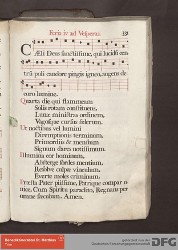 Feria iv ad Vesperas
Cæli Deus sanctissime, qui lucidū cen
trū poli candore pingis igneo, augens de
coro lumine.
Quarta die qui flammeam
Solis rotam constituens,
Lunæ ministras ordinem,
Vagosque cursus siderum.
Ut noctibus vel lumini
Diremptionis terminum,
Primordiis & mensium
Signum dares notissimum.
Illumina cor hominum,
Absterge sordes mentium
Resolve culpæ vinculum
Everte moles criminum.
Præsta Pater piissime, Patrique compar u
nice, Cum Spiritu paraclito, Regnans per
omne sæculum. Amen.
DFG